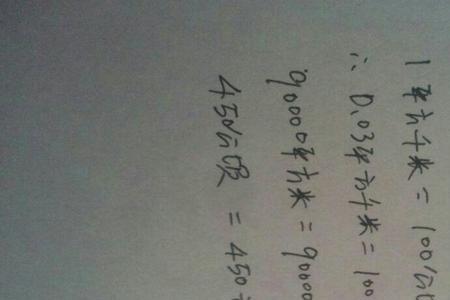 1平方千米=100公
∴0.03平方千米=100
90000平方米=90000
450公顷=450